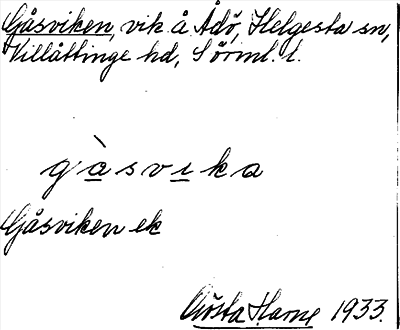 Gåsviken, vik å Ådö, Helgesta sn,
Villåttinge hd, Sörml. l.
gàsvika
Gåsviken ek
Gösta Hame 1933.